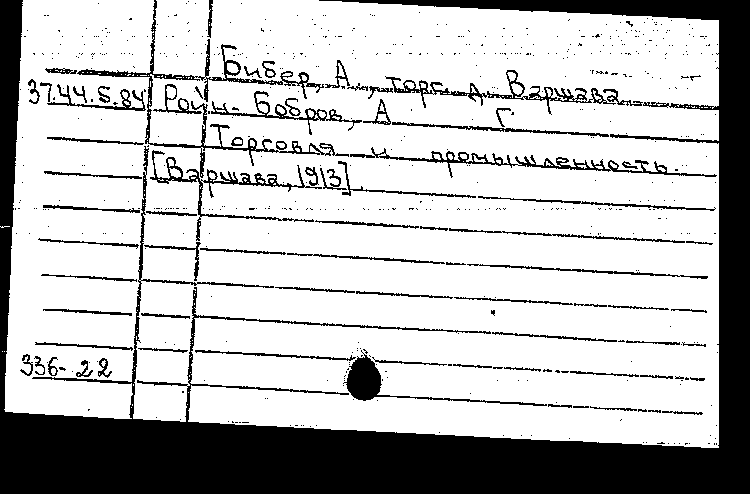 Бибер, А., торг. д. Варшава
37.44.5.84 Ройн-Бобров, А Г
Торговля и промышленность.
[Варшава, 1913].
336-22